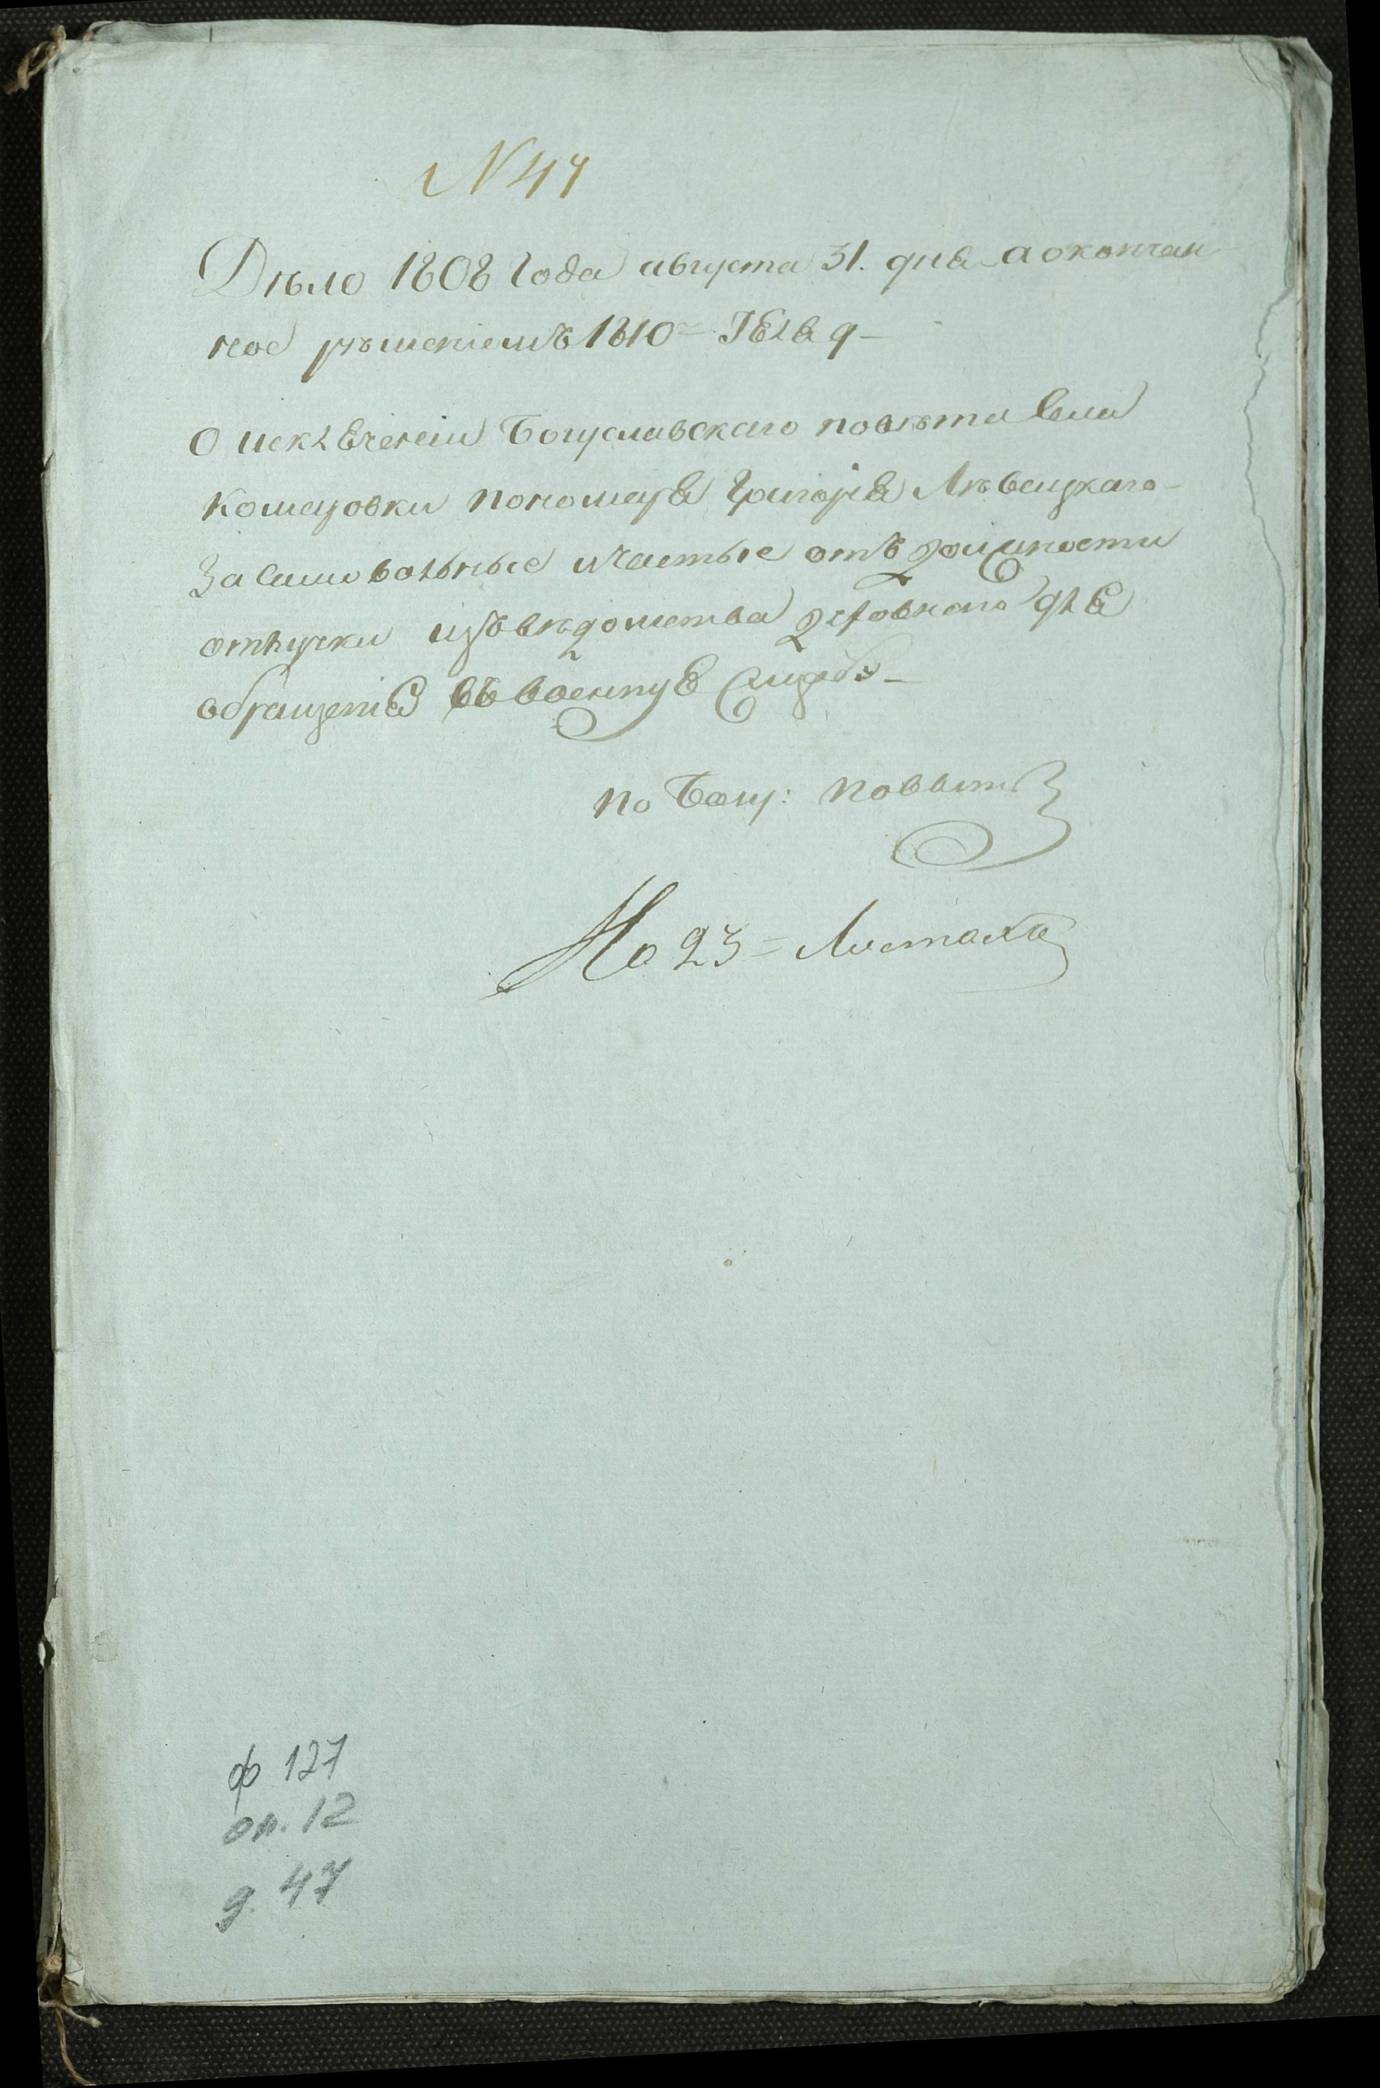 N 47
Дѣло 1808 года августа 31. дня а окончан
ное рѣшеніемъ 1810 = Іюля 9 –
О исключеніи Богуславскаго повѣта села
Комаровки пономаря Григорія Лѣвицкаго –
За самовольные и частые отъ должности
отлучки изъ вѣдомства духовнаго для
обращенія въ военную службу –
по Богу: повѣт
На 23 = Листахъ
ф 127
оп. 12
д. 47